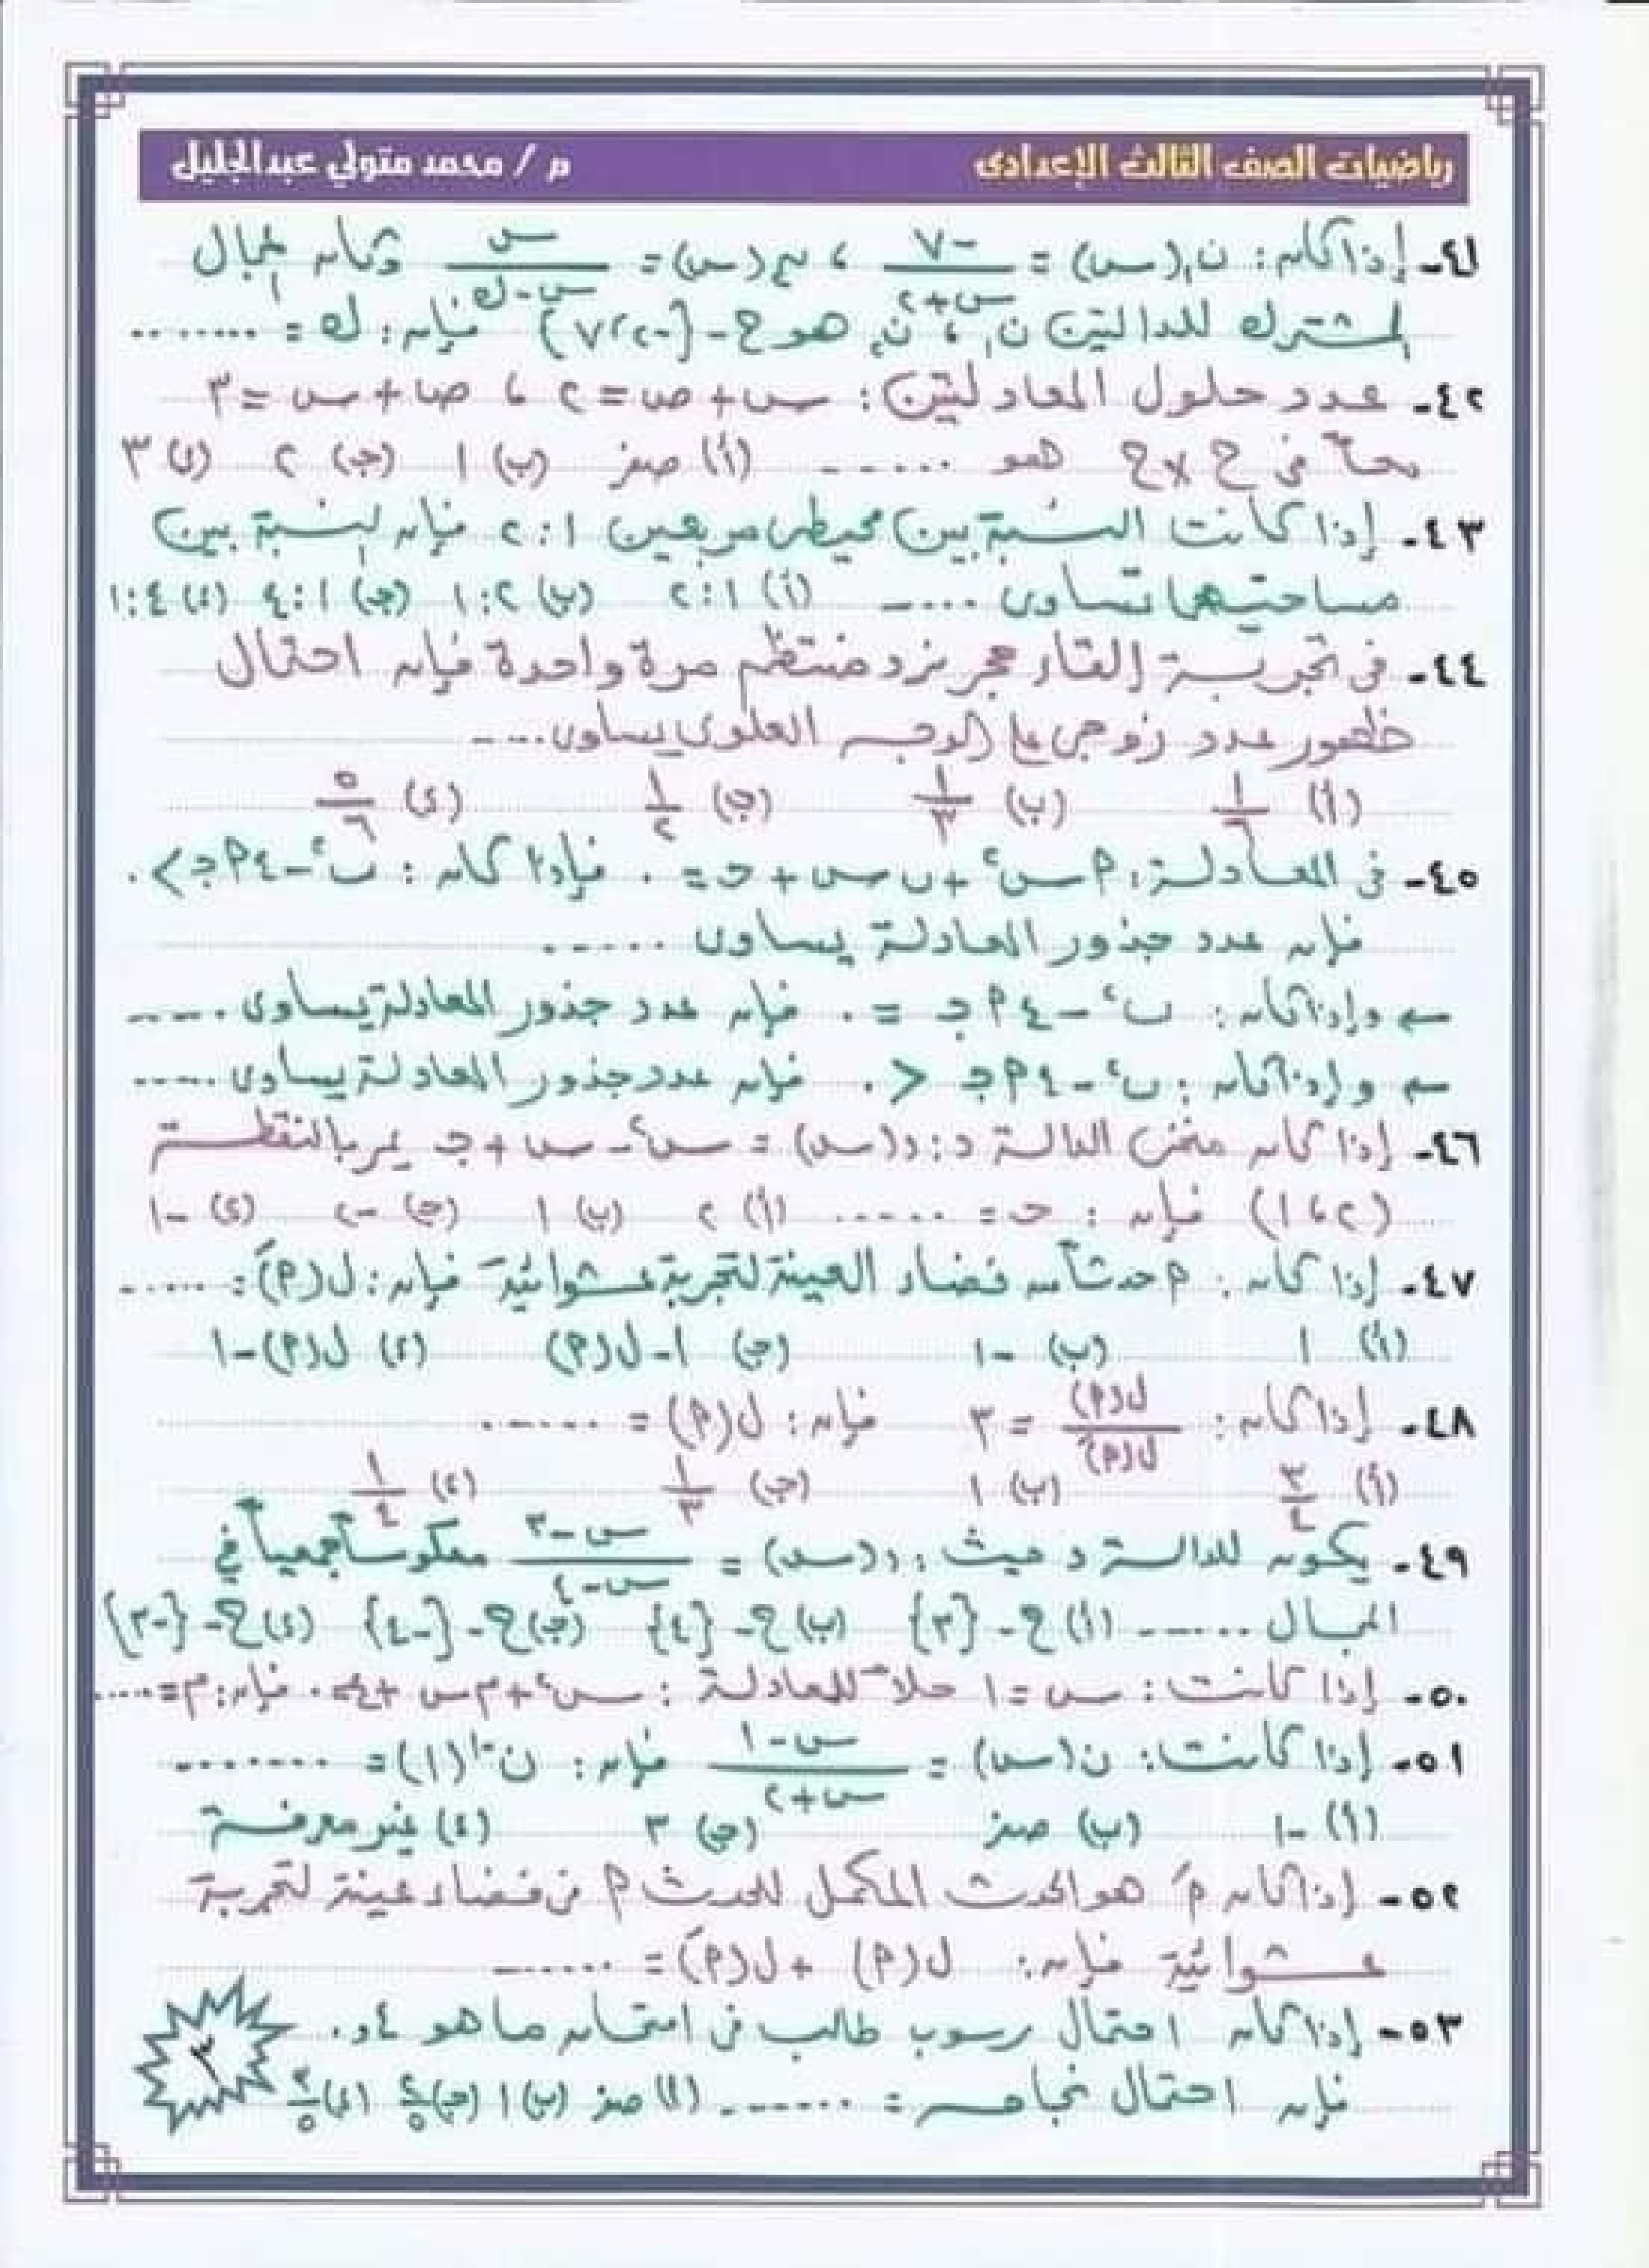 رياضيات الصف الثالث الإعدادى م / محمد متولي عبدالجليل
٤١- إذا كان: ن₁(س) = -٧ / س+٢ ، ن₂(س) = س / س-ك وكان المجال
المشترك للدالتين ن₁ ، ن₂ هو ح - {-٢، ٧} فإن: ك = ........
٤٢- عدد حلول المعادلتين: س + ص = ٢ ، ص + س = ٣
معاً فى ح × ح هو ...... (أ) صفر (ب) ١ (جـ) ٢ (د) ٣
٤٣- إذا كانت النسبة بين محيطى مربعين ١ : ٢ فإن النسبة بين
مساحتيهما تساوى ..... (أ) ١ : ٢ (ب) ٢ : ١ (جـ) ١ : ٤ (د) ٤ : ١
٤٤- فى تجربة إلقاء حجر نرد منتظم مرة واحدة فإن احتمال
ظهور عدد زوجى على الوجه العلوى يساوى .....
(أ) ١/٦ (ب) ١/٣ (جـ) ١/٢ (د) ٥/٦
٤٥- فى المعادلة: م س² + ب س + حـ = ٠ فإذا كان: ب² - ٤ م جـ > ٠
فإن عدد جذور المعادلة يساوى ......
← وإذا كان: ب² - ٤ م جـ = ٠ فإن عدد جذور المعادلة يساوى .....
← وإذا كان: ب² - ٤ م جـ < ٠ فإن عدد جذور المعادلة يساوى .....
٤٦- إذا كان منحنى الدالة د: د(س) = س² - س + جـ يمر بالنقطة
(٢، ١) فإن: حـ = ...... (أ) ٢ (ب) ١ (جـ) -٢ (د) -١
٤٧- إذا كان: م حدثاً من فضاء العينة لتجربة عشوائية فإن: ل(مَ) = ......
(أ) ١ (ب) -١ (جـ) ١ - ل(م) (د) ل(م) - ١
٤٨- إذا كان: ل(م) / ل(مَ) = ٣ فإن: ل(م) = ......
(أ) ٣/٤ (ب) ١ (جـ) ١/٣ (د) ١/٤
٤٩- يكون للدالة د حيث: د(س) = س-٣ / س-٤ معكوساً جمعياً فى
المجال ...... (أ) ح - {٣} (ب) ح - {٤} (جـ) ح - {-٤} (د) ح - {-٣}
٥٠- إذا كانت: س = ١ حلاً للمعادلة: س² + م س + ٤ = ٠ فإن: م = .....
٥١- إذا كانت: ن(س) = س-١ / س+٢ فإن: ن⁻¹(١) = ........
(أ) -١ (ب) صفر (جـ) ٣ (د) غير معرفة
٥٢- إذا كان مَ هو الحدث المكمل للحدث م من فضاء عينة لتجربة
عشوائية فإن: ل(م) + ل(مَ) = ......
٥٣- إذا كان احتمال رسوب طالب فى امتحان ما هو ٤و٠
فإن احتمال نجاحه = ...... (أ) صفر (ب) ١ (جـ) ٢/٥ (د) ٣/٥